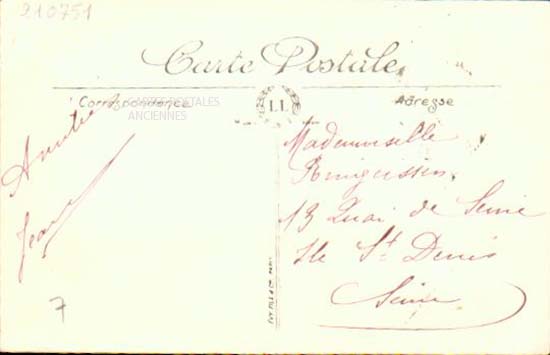 210751
Carte Postale
Correspondance
Adresse
CARTES POSTALES
ANCIENNES
LL
Jean
Mademoiselle
13 Quai de Seine
Ile St Denis
Seine
7